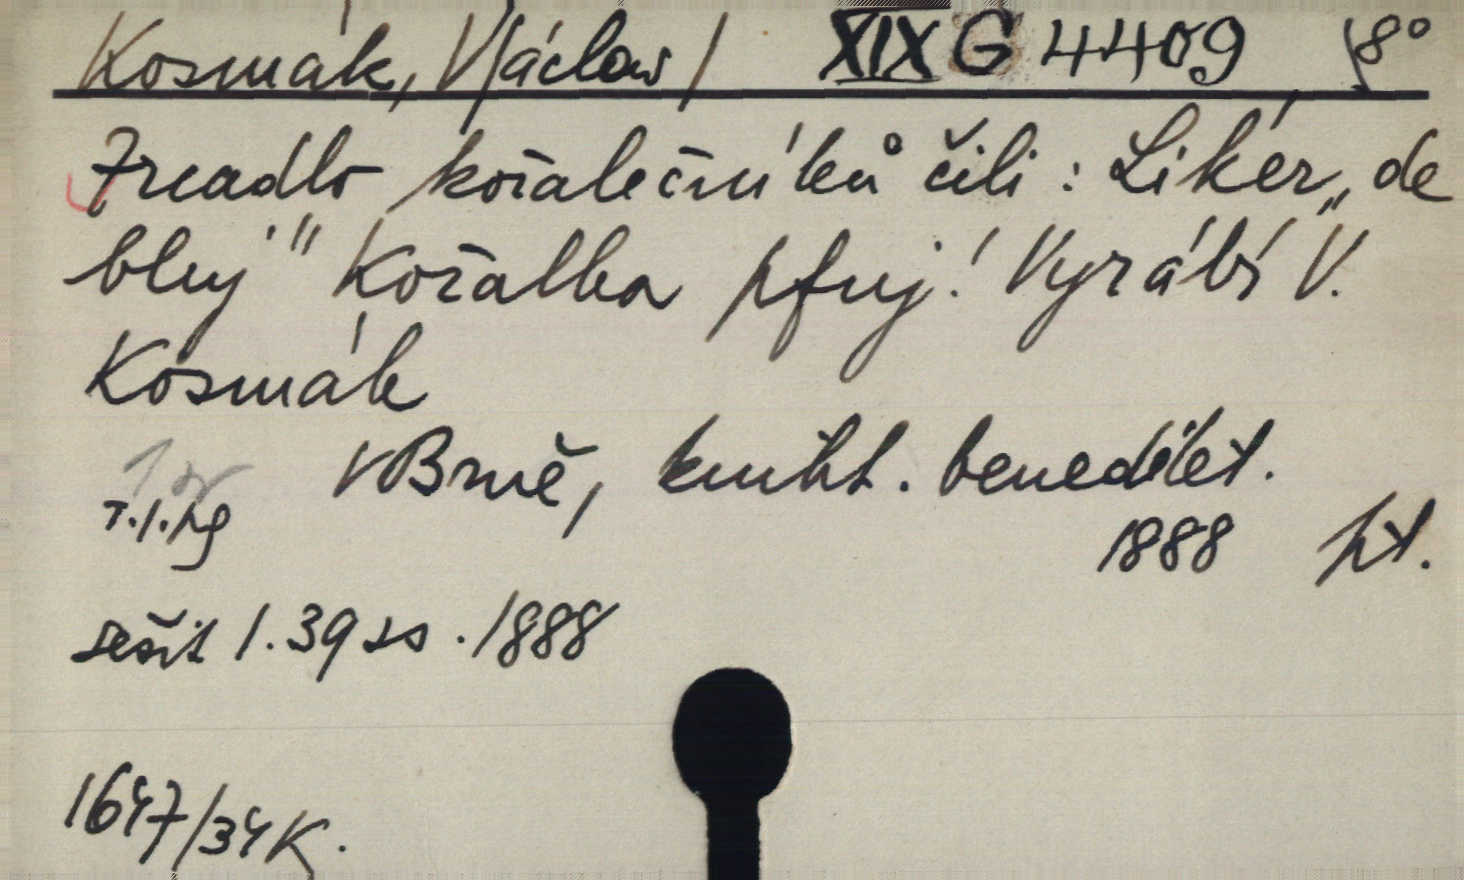 Kosmák, V/áclav/ XIX G 4409 /8°
Zrcadlo kořalečníků čili: Likér „de
bluj" Kořalka pfuj! Vyrábí V.
Kosmák
v Brně, kniht. benedikt.
T.I.
1888
sešit 1. 39 ss. 1888
1647/34K.